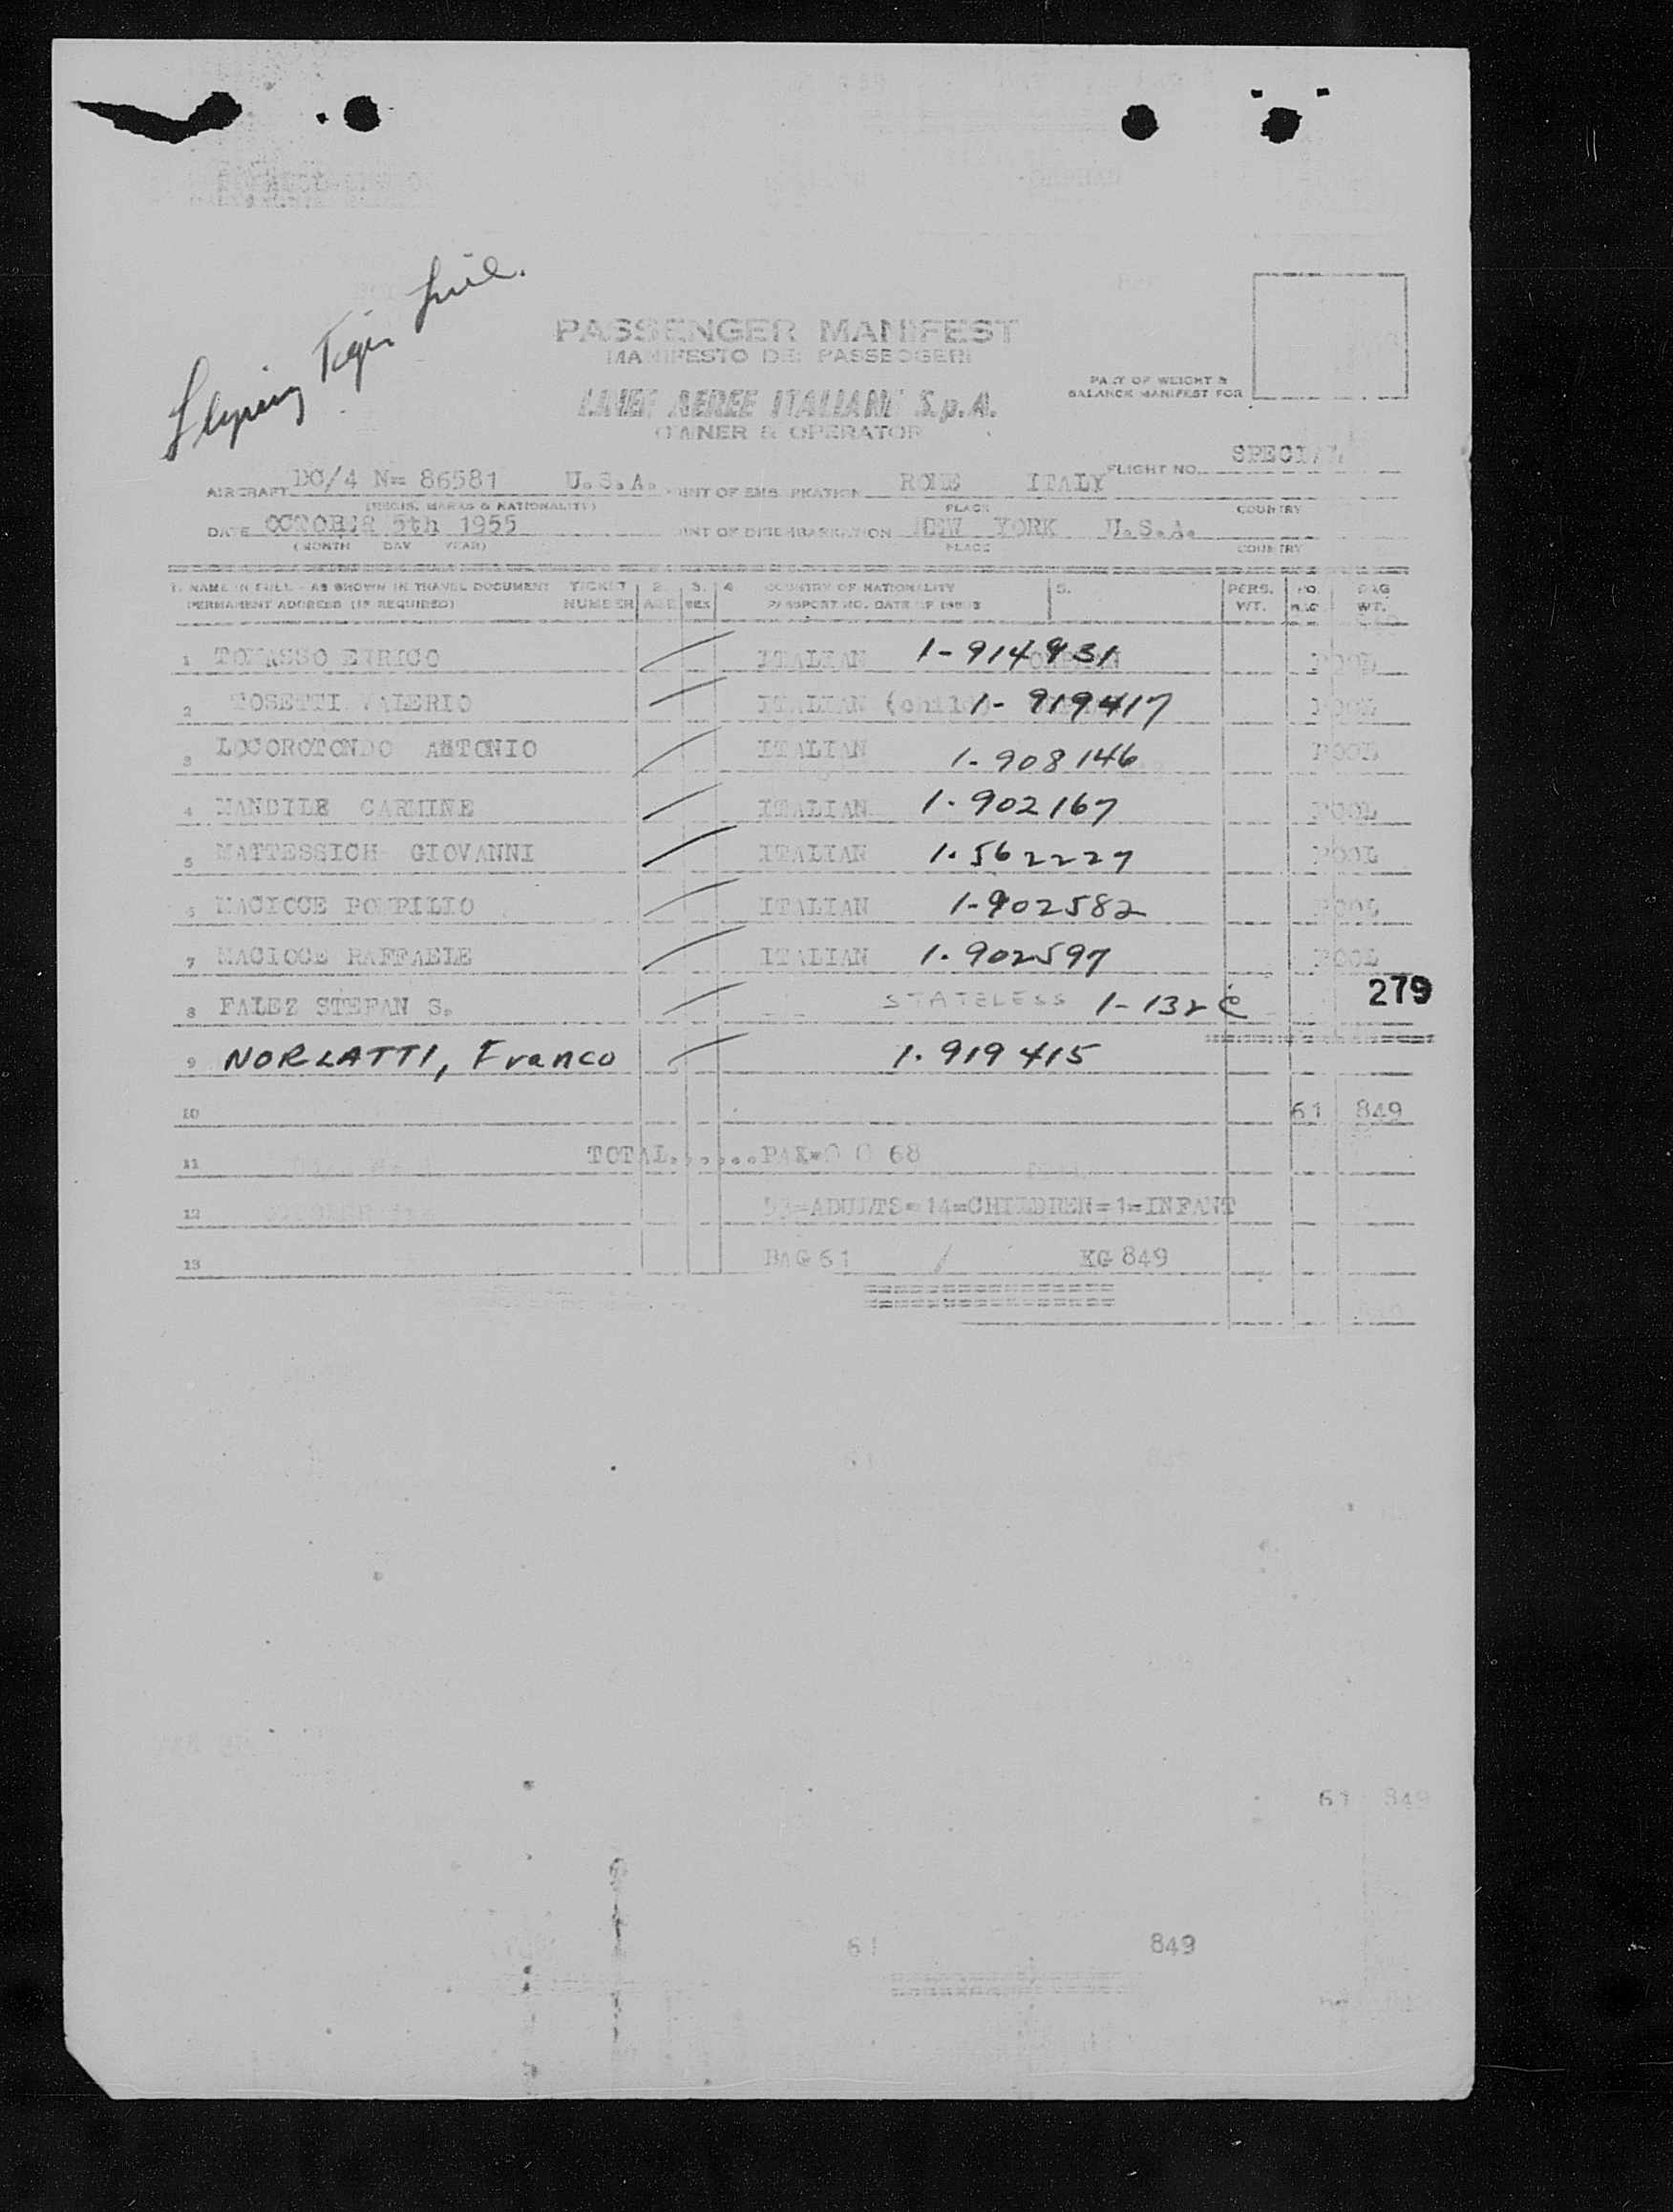 Flying Tiger Line.
PASSENGER MANIFEST
MANIFESTO DEI PASSEGGERI
LINEE AEREE ITALIANE S.p.A.
OWNER & OPERATOR
PART OF WEIGHT &
BALANCE MANIFEST FOR
AIRCRAFT DC/4 N= 86581 U.S.A. POINT OF EMBARKATION ROME ITALY FLIGHT NO. SPECIAL
(REGIS. MARKS & NATIONALITY) PLACE COUNTRY
DATE OCTOBER 5th 1955 POINT OF DISEMBARKATION NEW YORK U.S.A.
(MONTH DAY YEAR) PLACE COUNTRY
1. NAME IN FULL - AS SHOWN IN TRAVEL DOCUMENT TICKET 2. 3. 4. COUNTRY OF NATIONALITY 5. PERS. NO. BAG
PERMANENT ADDRESS (IF REQUIRED) NUMBER AGE SEX PASSPORT NO. DATE OF ISSUE WT. WT.
1 TOMASSO ENRICO ITALIAN 1-914931 POOL
2 TOSETTI VALERIO ITALIAN (child) 1-919417 POOL
3 LOCOROTONDO ANTONIO ITALIAN 1-908146 POOL
4 MANDILE CARMINE ITALIAN 1-902167 POOL
5 MATTESSICH GIOVANNI ITALIAN 1.562227 POOL
6 MACIOCE POMPILIO ITALIAN 1-902582 POOL
7 MACIOCE RAFFAELE ITALIAN 1.902597 POOL
8 FALEZ STEFAN S. STATELESS 1-132 279
9 NORLATTI, Franco 1.919415
10 61 849
11 TOTAL......PAX= 68
12 =ADULTS=14=CHILDREN=1=INFANT
13 BAG 61 / KG 849
61 849
61 849